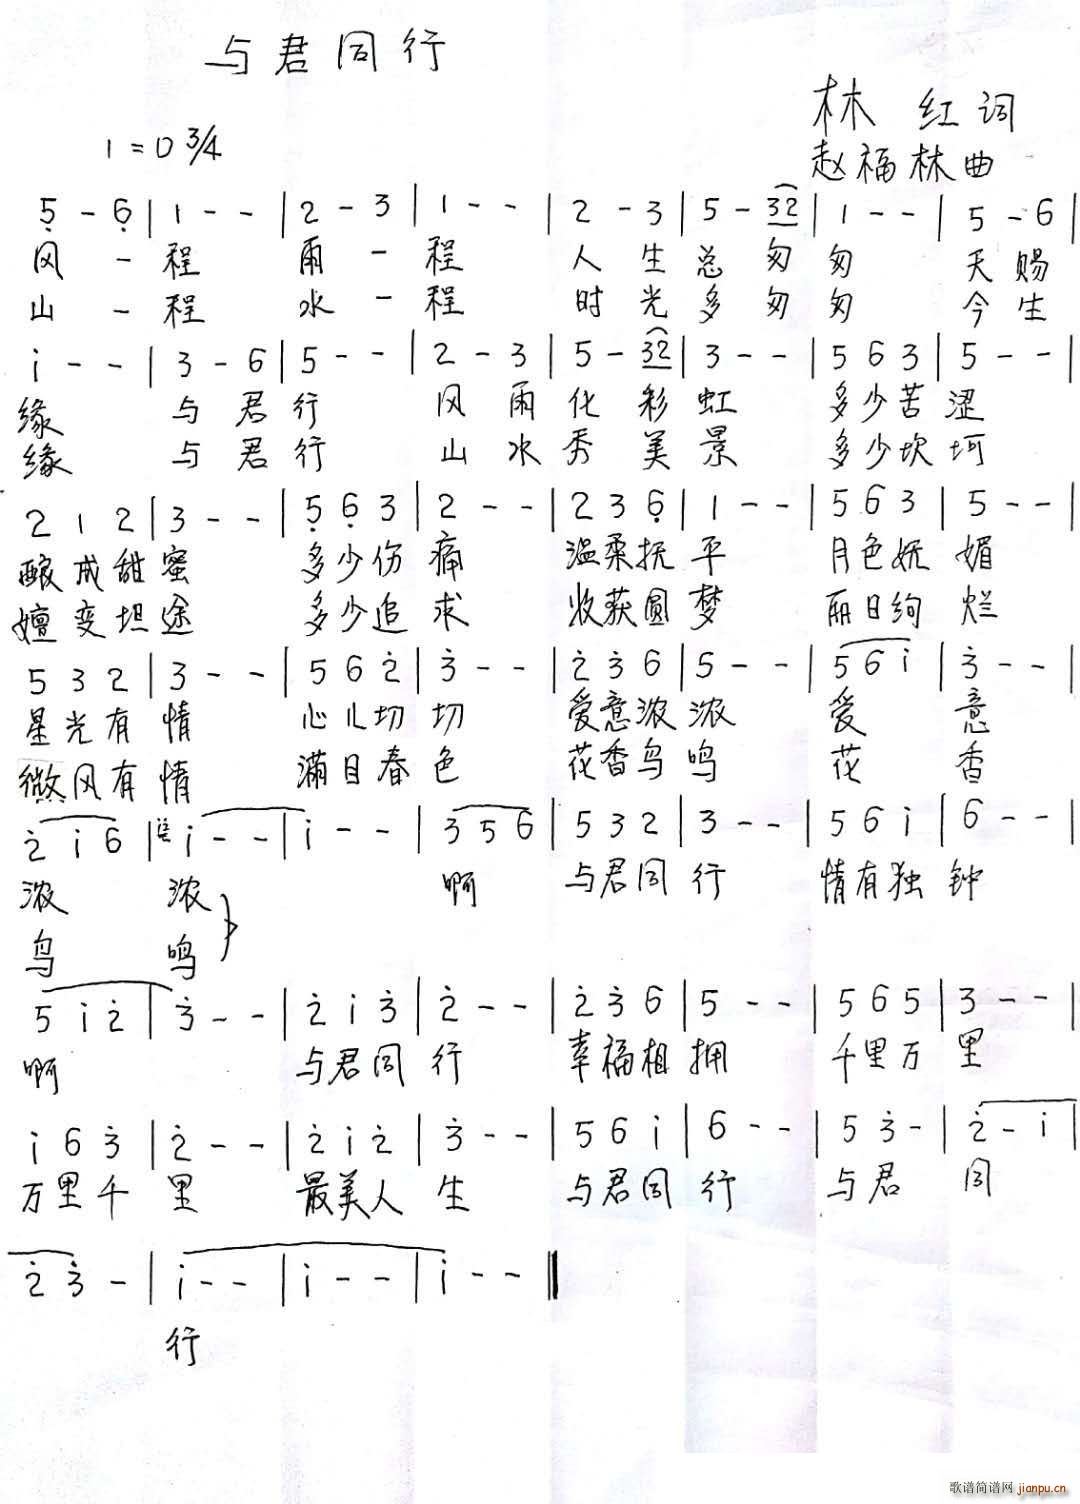 与君同行
林 红 词
1=D 3/4
赵福林曲
5̣ - 6̣ | 1 - - | 2 - 3 | 1 - - | 2 - 3 | 5 - 32 | 1 - - | 5 - 6 |
风 一 程 雨 一 程 人 生 总 匆 匆 天 赐
山 一 程 水 一 程 时 光 多 匆 匆 今 生
i - - | 3 - 6 | 5 - - | 2 - 3 | 5 - 32 | 3 - - | 5 6 3 | 5 - - |
缘 与 君 行 风 雨 化 彩 虹 多少苦 涩
缘 与 君 行 山 水 秀 美 景 多少坎 坷
2 1 2 | 3 - - | 5̣ 6̣ 3 | 2 - - | 2 3 6̣ | 1 - - | 5 6 3 | 5 - - |
酿成甜蜜 多少伤 痛 温柔抚 平 月色妩 媚
嬗变坦途 多少追 求 收获圆 梦 丽日绚 烂
5 3 2 | 3 - - | 5 6 2̇ | 3̇ - - | 2̇ 3̇ 6 | 5 - - | 5 6 i | 3̇ - - |
星光有 情 心儿切 切 爱意浓 浓 爱 意
微风有 情 满目春 色 花香鸟 鸣 花 香
2̇ i 6 | i - - | i - - | 3 5 6 | 5 3 2 | 3 - - | 5 6 i | 6 - - |
浓 浓 啊 与君同 行 情有独 钟
鸟 鸣
5 i 2̇ | 3̇ - - | 2̇ i 3̇ | 2̇ - - | 2̇ 3̇ 6 | 5 - - | 5 6 5 | 3 - - |
啊 与君同 行 幸福相 拥 千里万 里
i 6 3̇ | 2̇ - - | 2̇ i 2̇ | 3̇ - - | 5 6 i | 6 - - | 5 3̇ - | 2̇ - i |
万里千 里 最美人 生 与君同 行 与君 同
2̇ 3̇ - | i - - | i - - | i - - ‖
行
歌谱简谱网 jianpu.cn